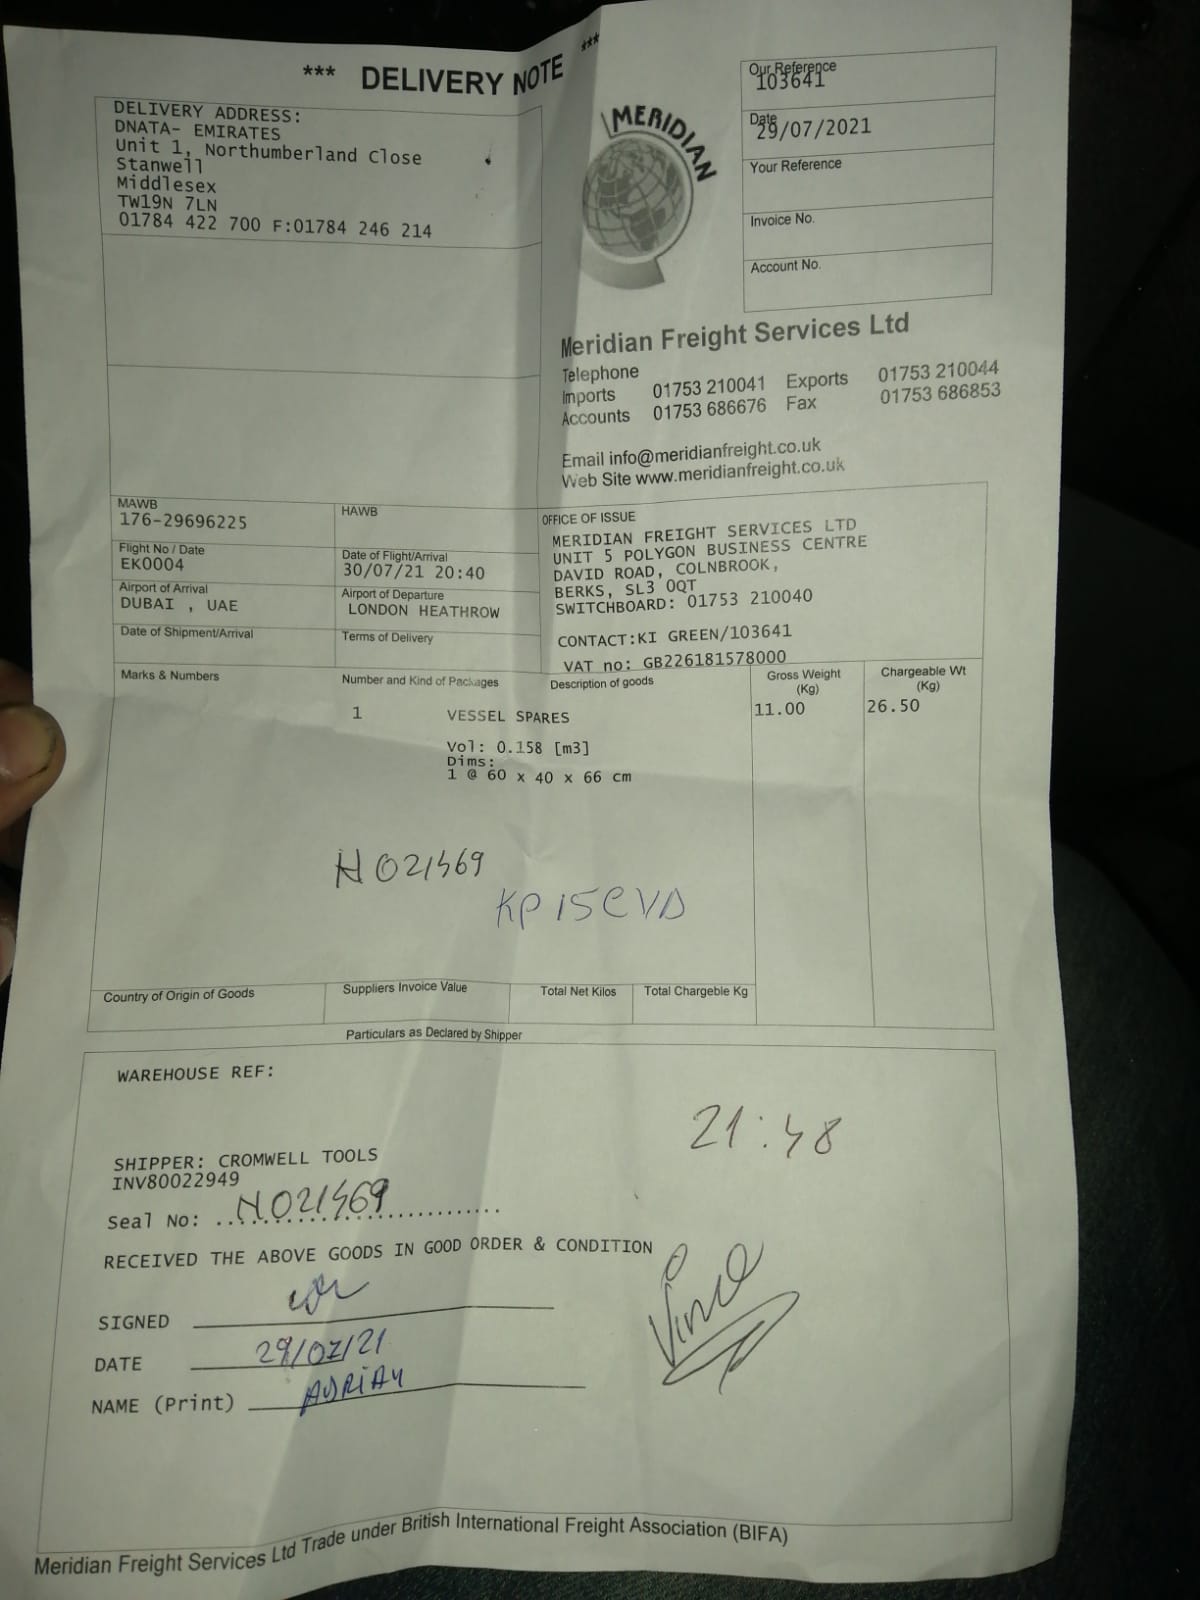 *** DELIVERY NOTE ***
DELIVERY ADDRESS:
DNATA- EMIRATES
Unit 1, Northumberland Close
Stanwell
Middlesex
TW19N 7LN
01784 422 700 F:01784 246 214
MERIDIAN
Our Reference
103641
Date
29/07/2021
Your Reference
Invoice No.
Account No.
Meridian Freight Services Ltd
Telephone
Imports 01753 210041 Exports 01753 210044
Accounts 01753 686676 Fax 01753 686853
Email info@meridianfreight.co.uk
Web Site www.meridianfreight.co.uk
MAWB
176-29696225
HAWB
Flight No / Date
EK0004
Date of Flight/Arrival
30/07/21 20:40
Airport of Arrival
DUBAI , UAE
Airport of Departure
LONDON HEATHROW
Date of Shipment/Arrival
Terms of Delivery
OFFICE OF ISSUE
MERIDIAN FREIGHT SERVICES LTD
UNIT 5 POLYGON BUSINESS CENTRE
DAVID ROAD, COLNBROOK,
BERKS, SL3 0QT
SWITCHBOARD: 01753 210040
CONTACT:KI GREEN/103641
VAT no: GB226181578000
Marks & Numbers
Number and Kind of Packages
Description of goods
Gross Weight
(Kg)
Chargeable Wt
(Kg)
1 VESSEL SPARES 11.00 26.50
Vol: 0.158 [m3]
Dims:
1 @ 60 x 40 x 66 cm
N021469
KP15CVD
Country of Origin of Goods
Suppliers Invoice Value
Total Net Kilos
Total Chargeble Kg
Particulars as Declared by Shipper
WAREHOUSE REF:
21:48
SHIPPER: CROMWELL TOOLS
INV80022949
Seal No: N021469
RECEIVED THE ABOVE GOODS IN GOOD ORDER & CONDITION
SIGNED
DATE 29/07/21
NAME (Print) ADRIAN
Vince
Meridian Freight Services Ltd Trade under British International Freight Association (BIFA)